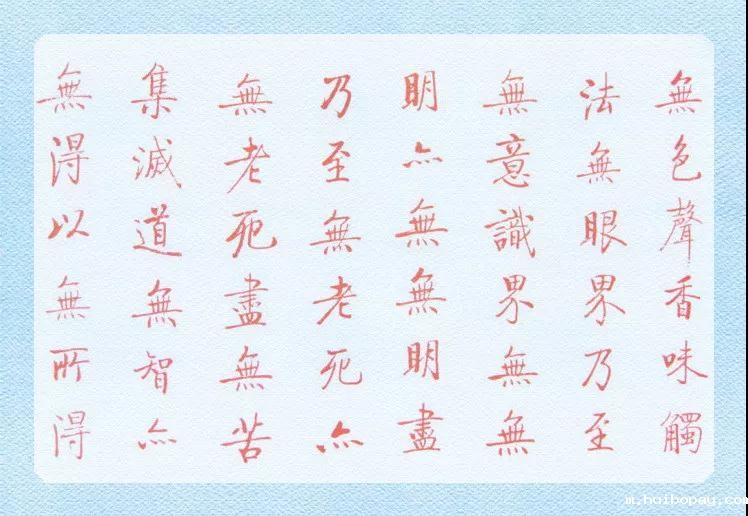 無色聲香味觸
法無眼界乃至
無意識界無無
明亦無無明盡
乃至無老死亦
無老死盡無苦
集滅道無智亦
無得以無所得
m.huibopay.com